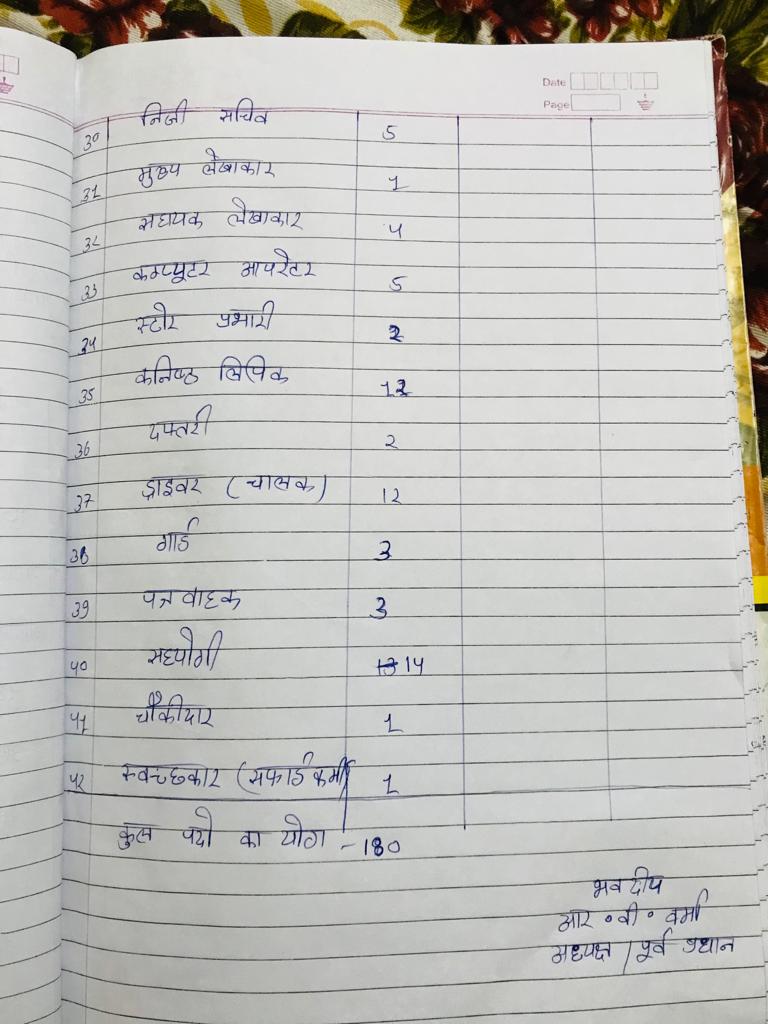 Date
Page
30 निजी सचिव 5
31 मुख्य लेखाकार 1
32 सहायक लेखाकार 4
33 कम्प्यूटर आपरेटर 5
34 स्टोर प्रभारी 2
35 कनिष्ठ लिपिक 12
36 दफ्तरी 2
37 ड्राइवर (चालक) 12
38 गार्ड 3
39 पत्रवाहक 3
40 सहयोगी 13 14
41 चौकीदार 1
42 स्वच्छकार (सफाई कर्मी) 1
कुल पदो का योग - 180
भवदीय
आर॰ वी॰ वर्मा
अध्यक्ष / पूर्व प्रधान